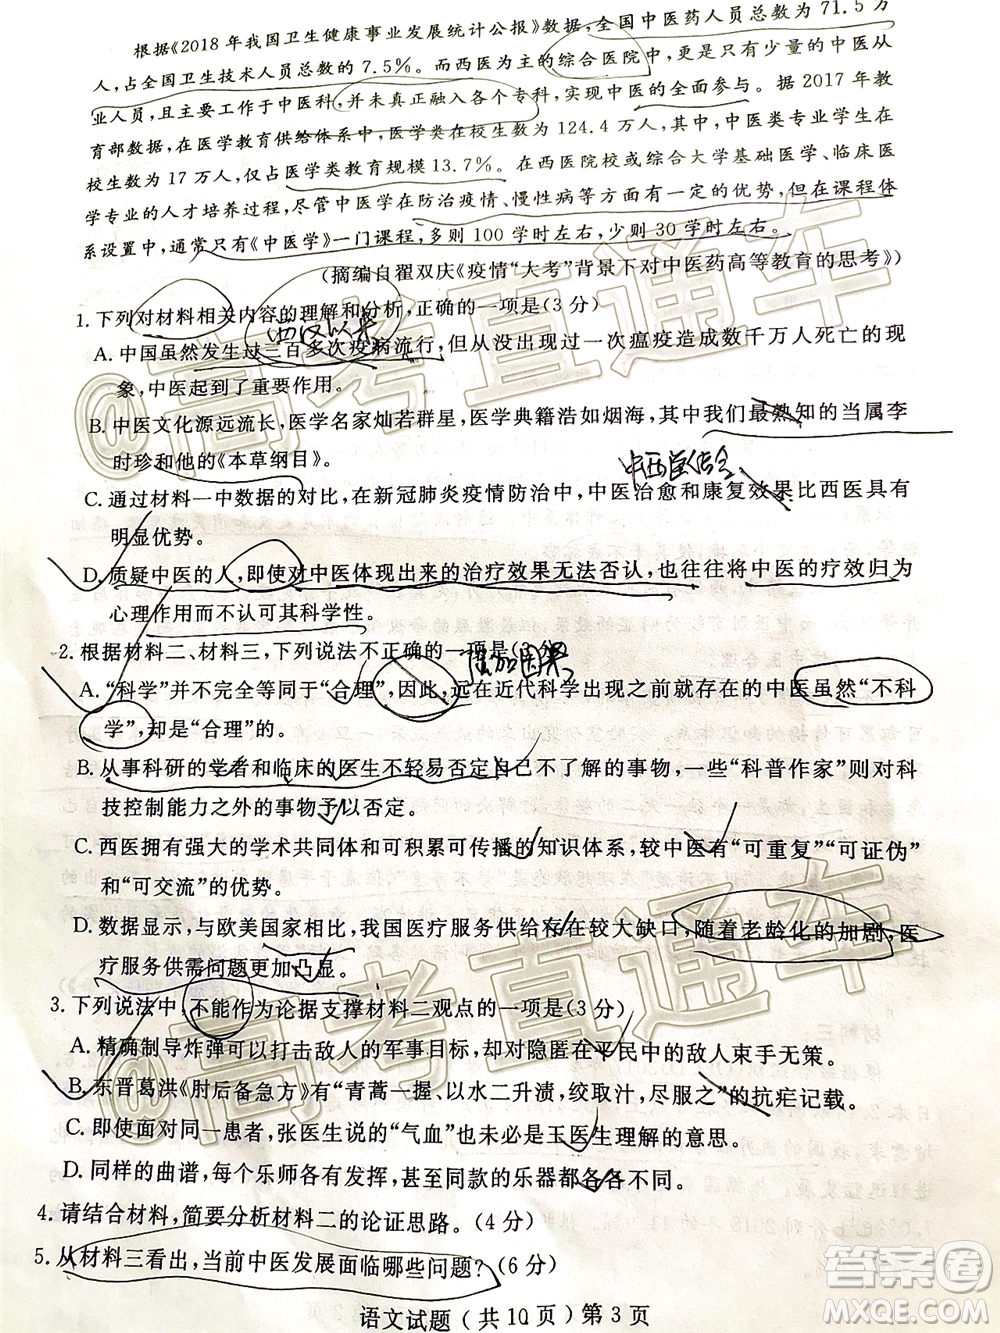 根据《2018 年我国卫生健康事业发展统计公报》数据，全国中医药人员总数为 71.5 万
人，占全国卫生技术人员总数的 7.5%。而西医为主的综合医院中，更是只有少量的中医从
业人员，且主要工作于中医科，并未真正融入各个专科，实现中医的全面参与。据 2017 年教
育部数据，在医学教育供给体系中，医学类在校生总数为 124.4 万人，其中，中医类专业学生在
校生总数为 17 万人，仅占医学类教育规模 13.7%。在西医院校或综合大学基础医学、临床医
学专业的人才培养过程，尽管中医学在防治疫情、慢性病等方面有一定的优势，但在课程体
系设置中，通常只有《中医学》一门课程，多则 100 学时左右，少则 30 学时左右。
（摘编自翟双庆《疫情“大考”背景下对中医药高等教育的思考》）
1. 下列对材料相关内容的理解和分析，正确的一项是（3 分）
西汉以来
A. 中国虽然发生过三百多次疫病流行，但从没出现过一次瘟疫造成数千万人死亡的现
象，中医起到了重要作用。
B. 中医文化源远流长，医学名家灿若群星，医学典籍浩如烟海，其中我们最熟知的当属李
时珍和他的《本草纲目》。
C. 通过材料一中数据的对比，在新冠肺炎疫情防治中，中医治愈和康复效果比西医具有
明显优势。
D. 质疑中医的人，即使对中医体现出来的治疗效果无法否认，也往往将中医的疗效归为
心理作用而不认可其科学性。
2. 根据材料二、材料三，下列说法不正确的一项是（3 分）
A. “科学”并不完全等同于“合理”，因此，远在近代科学出现之前就存在的中医虽然“不科
学”，却是“合理”的。
B. 从事科研的学者和临床的医生不轻易否定自己不了解的事物，一些“科普作家”则对科
技控制能力之外的事物予以否定。
C. 西医拥有强大的学术共同体和可积累可传播的知识体系，较中医有“可重复”“可证伪”
和“可交流”的优势。
D. 数据显示，与欧美国家相比，我国医疗服务供给存在较大缺口，随着老龄化的加剧，医
疗服务供需问题更加凸显。
3. 下列说法中，不能作为论据支撑材料二观点的一项是（3 分）
A. 精确制导炸弹可以打击敌人的军事目标，却对隐匿在平民中的敌人束手无策。
B. 东晋葛洪《肘后备急方》有“青蒿一握，以水二升渍，绞取汁，尽服之”的抗疟记载。
C. 即使面对同一患者，张医生说的“气血”也未必是王医生理解的意思。
D. 同样的曲谱，每个乐师各有发挥，甚至同款的乐器都各各不同。
4. 请结合材料，简要分析材料二的论证思路。（4 分）
5. 从材料三看出，当前中医发展面临哪些问题？（6 分）
语文试题（共 10 页）第 3 页
@高考直通车
@高考直通车
答案圈
MXQE.COM